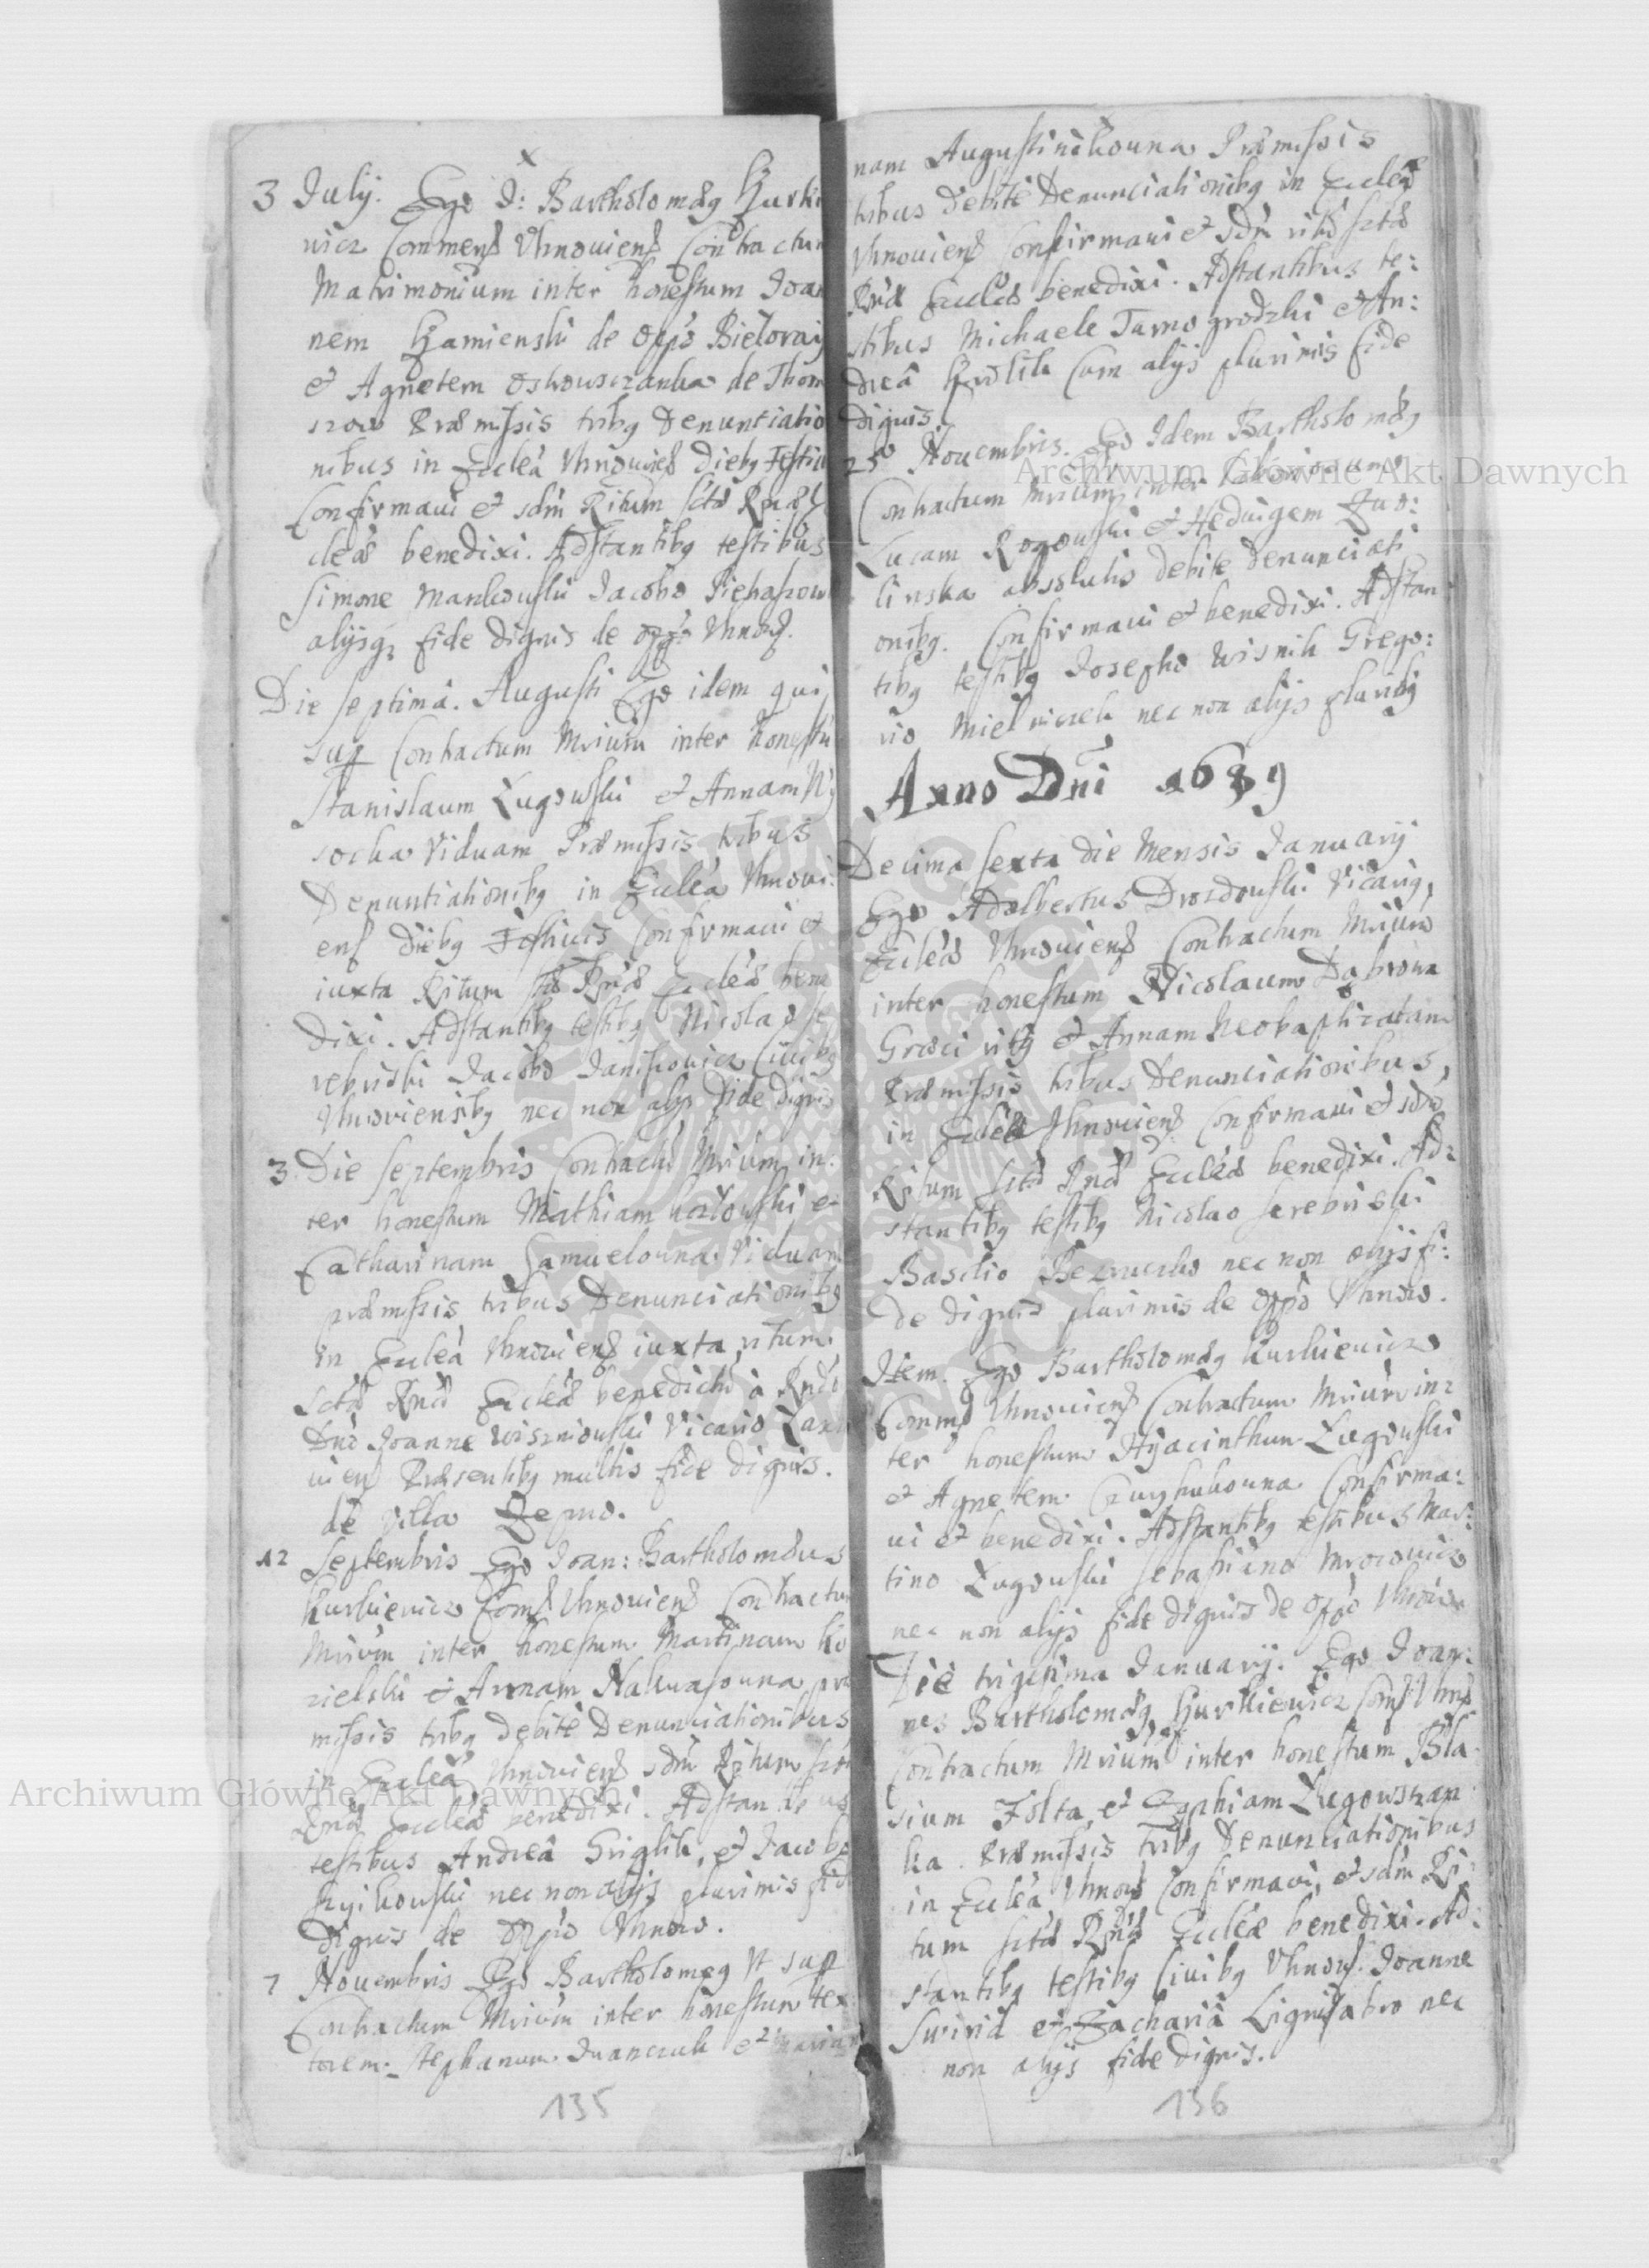 3 July. Ego J: Bartholomæg Kurki
wicz Commend Vhnouiens Contractum
Matrimonium inter honestum Joan
nem Kamienski de Oppo Bieloray
et Agnetem Oskousczanka de Thom
szow Præmissis tribg Denuntiatio
nibus in Eccleâ Vhnouiens diebg Festiu
Confirmaui et sdm Ritum sctæ Rnæ Ec
cleæ benedixi. Adstantibg testibus
Simone Mankouski Jacobo
alijsq fide dignis de oppo Vhnow.
Die septima. Augusti Ego idem qui
sup Contractum Mrium inter honestu
Stanislaum Lugowski et Annam Wy
socka Viduam Præmissis tribus
Denuntiationibg in Eccleâ Vhnoui:
ens diebg Festiuis Confirmaui et
iuxta Ritum sctæ Rnæ Eccleæ bene
dixi. Adstantibg testibg Nicolao Se
rebriski Jacobo Janiszowicz Ciuibg
Vhnouiensibg nec non alijs fide dignis
3. Die Septembris Contractu Mrium in:
ter honestum Mathiam Kozlouski et
Catharinam Samuelouna Viduam
præmissis tribus Denunciationibg
in Eccleâ Vhnouiens iuxta ritum
sctæ Rnæ Eccleæ benedictu à Rndo
Dno Joanne Wiszniouski Vicario
uien Præsentibg multis fide dignis.
de villa
12 Septembris Ego Joan: Bartholomæus
Kurkiewicz Comd Vhnouiens Contractum
Mrium inter honestum Martinum Ko
zielski et Annam Nakwasouna præ
missis tribg debite Denunciationibus
in Eccleâ Vhnouiens sdm Ritum sctæ
Rnæ Eccleæ benedixi. Adstantibus
testibus Andreâ Griglik, et Jacobo
nec non alijs plurimis fide
dignis de oppo Vhnow.
7 Nouembris Ego Bartholomeg Vt sup
Contractum Mrium inter honestum tex
torem. Stephanum Iwanczuk et Marian
135
nam Augustinikouna Præmissis
tribus debite Denunciationibg in Eccleâ
Vhnouiens Confirmaui et sdm ritu sctæ
Rnæ Eccleæ benedixi. Adstantibus te:
stibus Michaele Tarnogrodzki et An:
dreâ Krolik Cum alijs plurimis fide
dignis.
25 Nouembris. Ego Idem Bartholomæg
Contractum Mrium inter Laboriosum
Lucam Rogouski et Heduigem
linska absolutis debite denunciati
onibg. Confirmaui et benedixi. Adstan
tibg testibg Josepho Wisnik Grego:
rio Mielniczek nec non alijs pluribg
Anno Dni 1689
Decima sexta die Mensis January
Ego Adalbertus Drozdouski Vicarig,
Eccleæ Vhnouiens Contractum Mrium
inter honestum Nicolaum Dąbrowa
Græci ritg et Annam Neobaptizatam
Præmissis tribus Denunciationibus,
in Eccleâ Vhnouiens Confirmaui et sdm
Ritum sctæ Rnæ Eccleæ benedixi. Ad:
stantibg testibg Nicolao Serebriski
Basilio nec non alijs fi:
de dignis plurimis de oppo Vhnow.
Item. Ego Bartholomæg Kurkiewicz
Commd Vhnouiens Contractum Mrium in:
ter honestum Hyacinthum Lugouski
et Agnetem Confirma:
ui et benedixi. Adstantibg testibus Mar:
tino Lugouski Sebastiano Mrozowicz
nec non alijs fide dignis de oppo Vhnow
Die trigesima January. Ego Joan:
nes Bartholomæg Kurkiewicz Comd Vhns
Contractum Mrium inter honestum Bla
sium Zolta, et Zophiam Lugowszan
ka. Præmissis tribg Denunciationibus
in Eccleâ Vhnow Confirmaui, et sdm Ri:
tum sctæ Rnæ Eccleæ benedixi. Ad:
stantibg testibg Ciuibg Vhnow. Joanne
Swirid et Zachariâ Lignifabro nec
non alijs fide dignis.
136
Archiwum Główne Akt Dawnych
Archiwum Główne Akt Dawnych